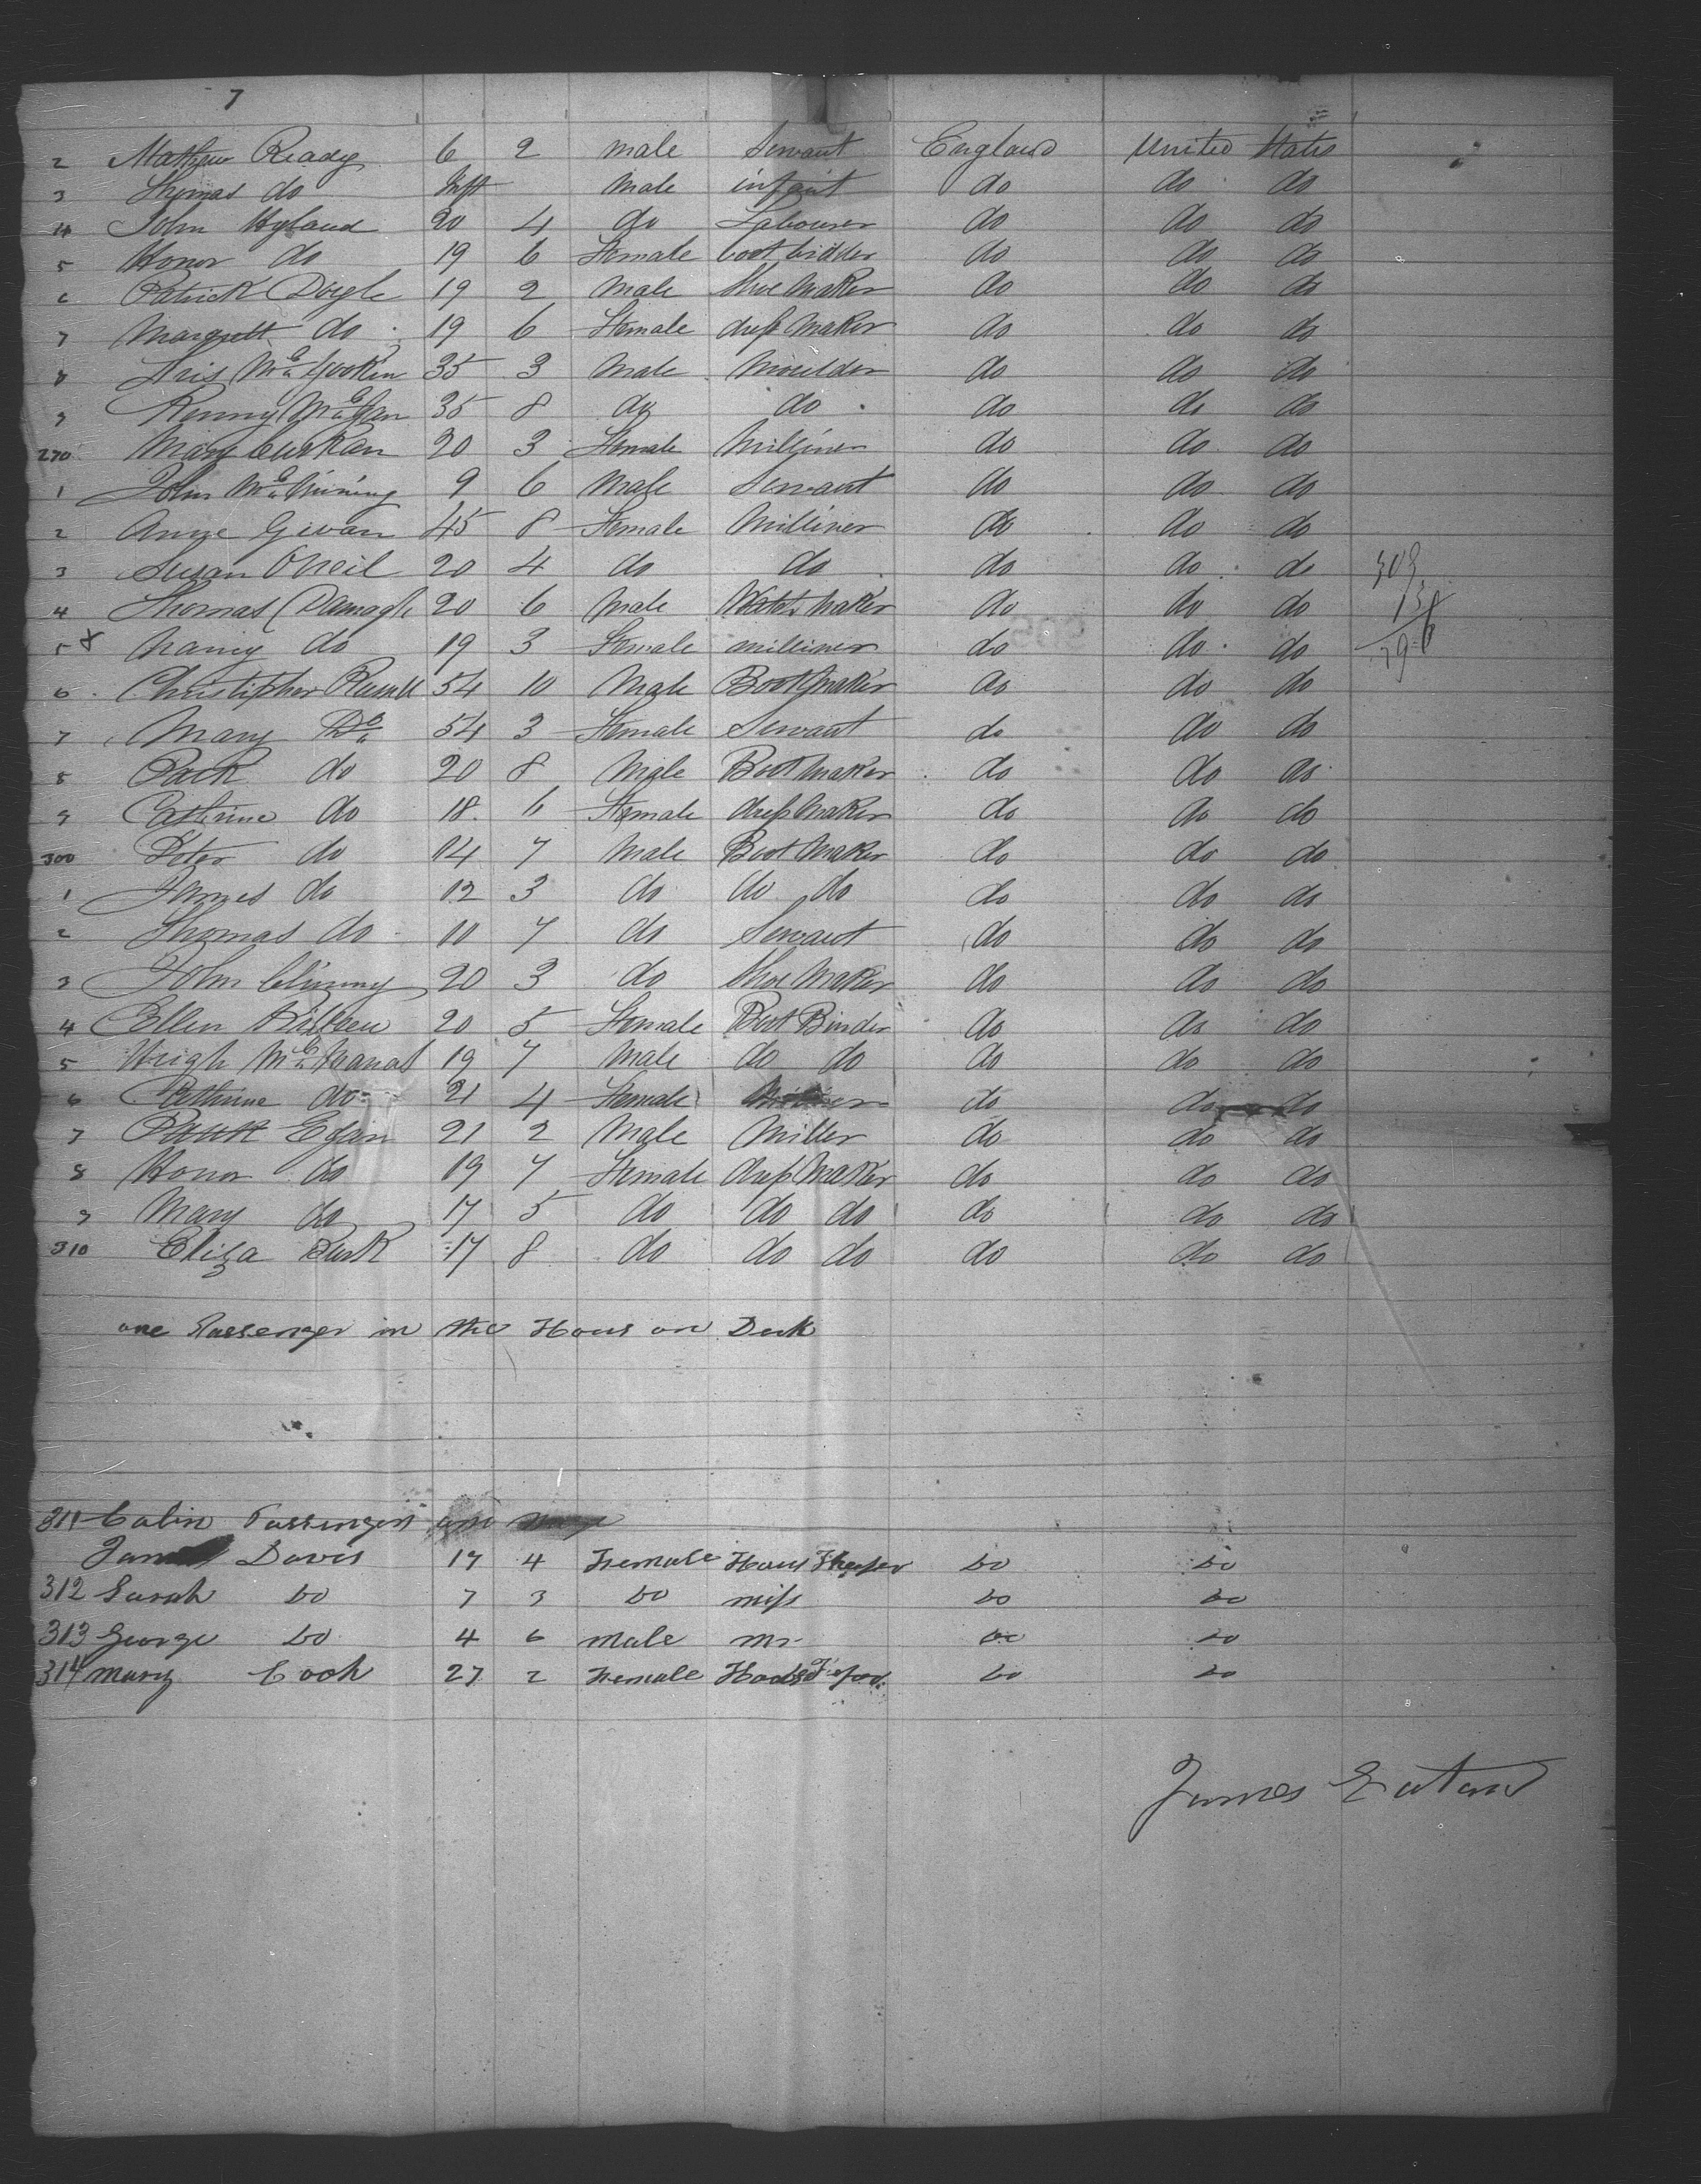 7
2 Mathew Ready 6 2 male Servant England United States
3 Thomas do Inft male infant do do do
4 John Hyland 20 4 do Labourer do do do
5 Honor do 19 6 Female boot bidder do do do
6 Patrick Doyle 19 2 male Shoe Maker do do do
7 Margrett do 19 6 Female dress Maker do do do
8 35 3 Male Moulder do do do
9 35 8 do do do do do
270 Mary 20 3 Female Milliner do do do
1 John 9 6 Male Servant do do do
2 Anne Gevan 45 8 Female Milliner do do do
3 Susan ONeil 20 4 do do do do do 303
4 Thomas 20 6 Male Watch Maker do do do
5 8 Nancy do 19 3 Female milliner do do do
6 Christipher Russell 54 10 Male Boot Maker do do do
7 Mary Do 54 3 Female Servant do do do
8 Patk do 20 8 Male Boot Maker do do do
9 Cathrine do 18 6 Female dress Maker do do do
300 Peter do 14 7 Male Boot Maker do do do
1 James do 12 3 do do do do do do
2 Thomas do 10 7 do Servant do do do
3 John 20 3 do Shoe Maker do do do
4 Ellen 20 5 Female Boot Binder do do do
5 Hugh 19 7 Male do do do do do
6 Cathrine do 21 4 Female do do do
7 Egan 21 2 Male Miller do do do
8 Honor do 19 7 Female dress Maker do do do
9 Mary do 17 5 do do do do do do
310 Eliza Burk 17 8 do do do do do do
one Passenger in the Hous on Deck
311 Cabin Passengers
Davis 17 4 Female Hous do do
312 Sarah Do 7 3 Do miss do do
313 George Do 4 6 male mr do do
314 Mary Cook 27 2 Female do do
James